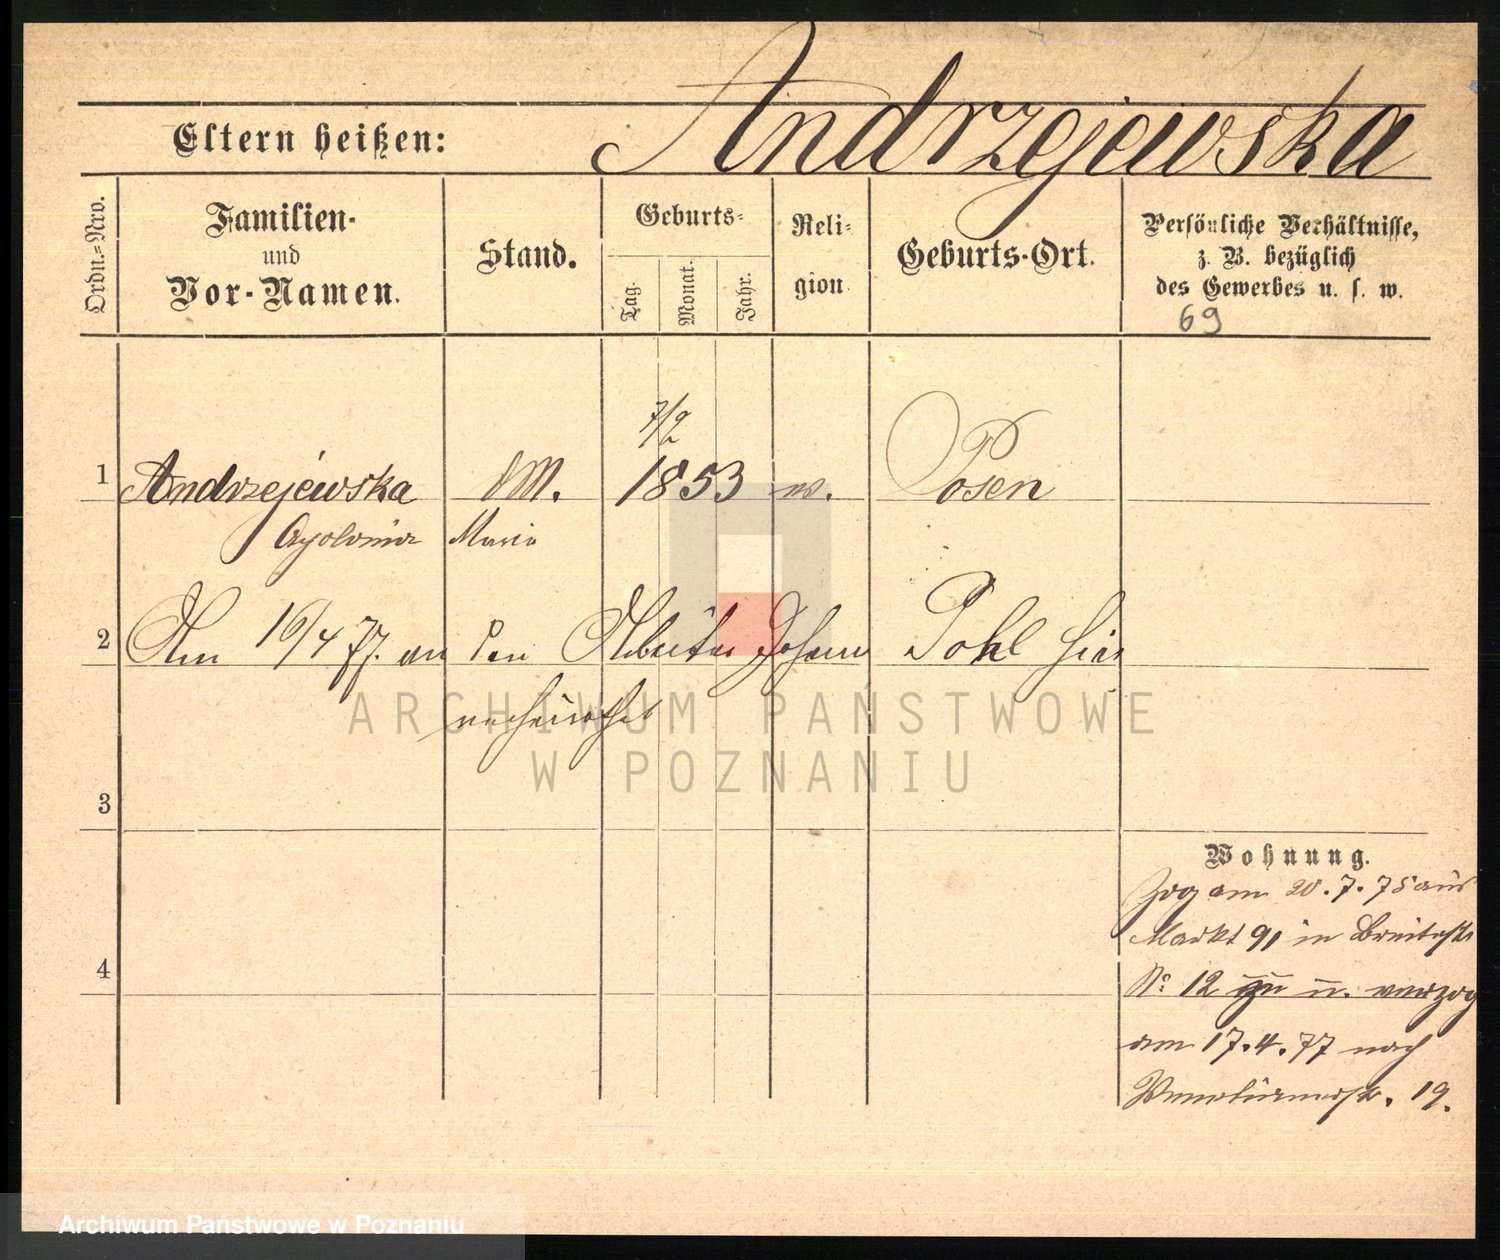 Andrzejewska
Eltern heißen:
Ordn.-Nro.
Familien-
und
Vor-Namen.
Stand.
Geburts-
Tag.
Monat.
Jahr.
Reli-
gion
Geburts-Ort.
Persönliche Verhältnisse,
z. B. bezüglich
des Gewerbes u. s. w.
69
7/9
1 Andrzejewska DM. 1853 Posen
Apolonia Maria
2 Am 16/4 77. an den Arbeiter Johann Pohl hier
verheirathet
ARCHIWUM PAŃSTWOWE
W POZNANIU
3
Wohnung.
Zog am 20.7.75 aus
Markt 91 in Breitestr
4
No 12 zu u. verzog
am 17.4.77 nach
19.
Archiwum Państwowe w Poznaniu